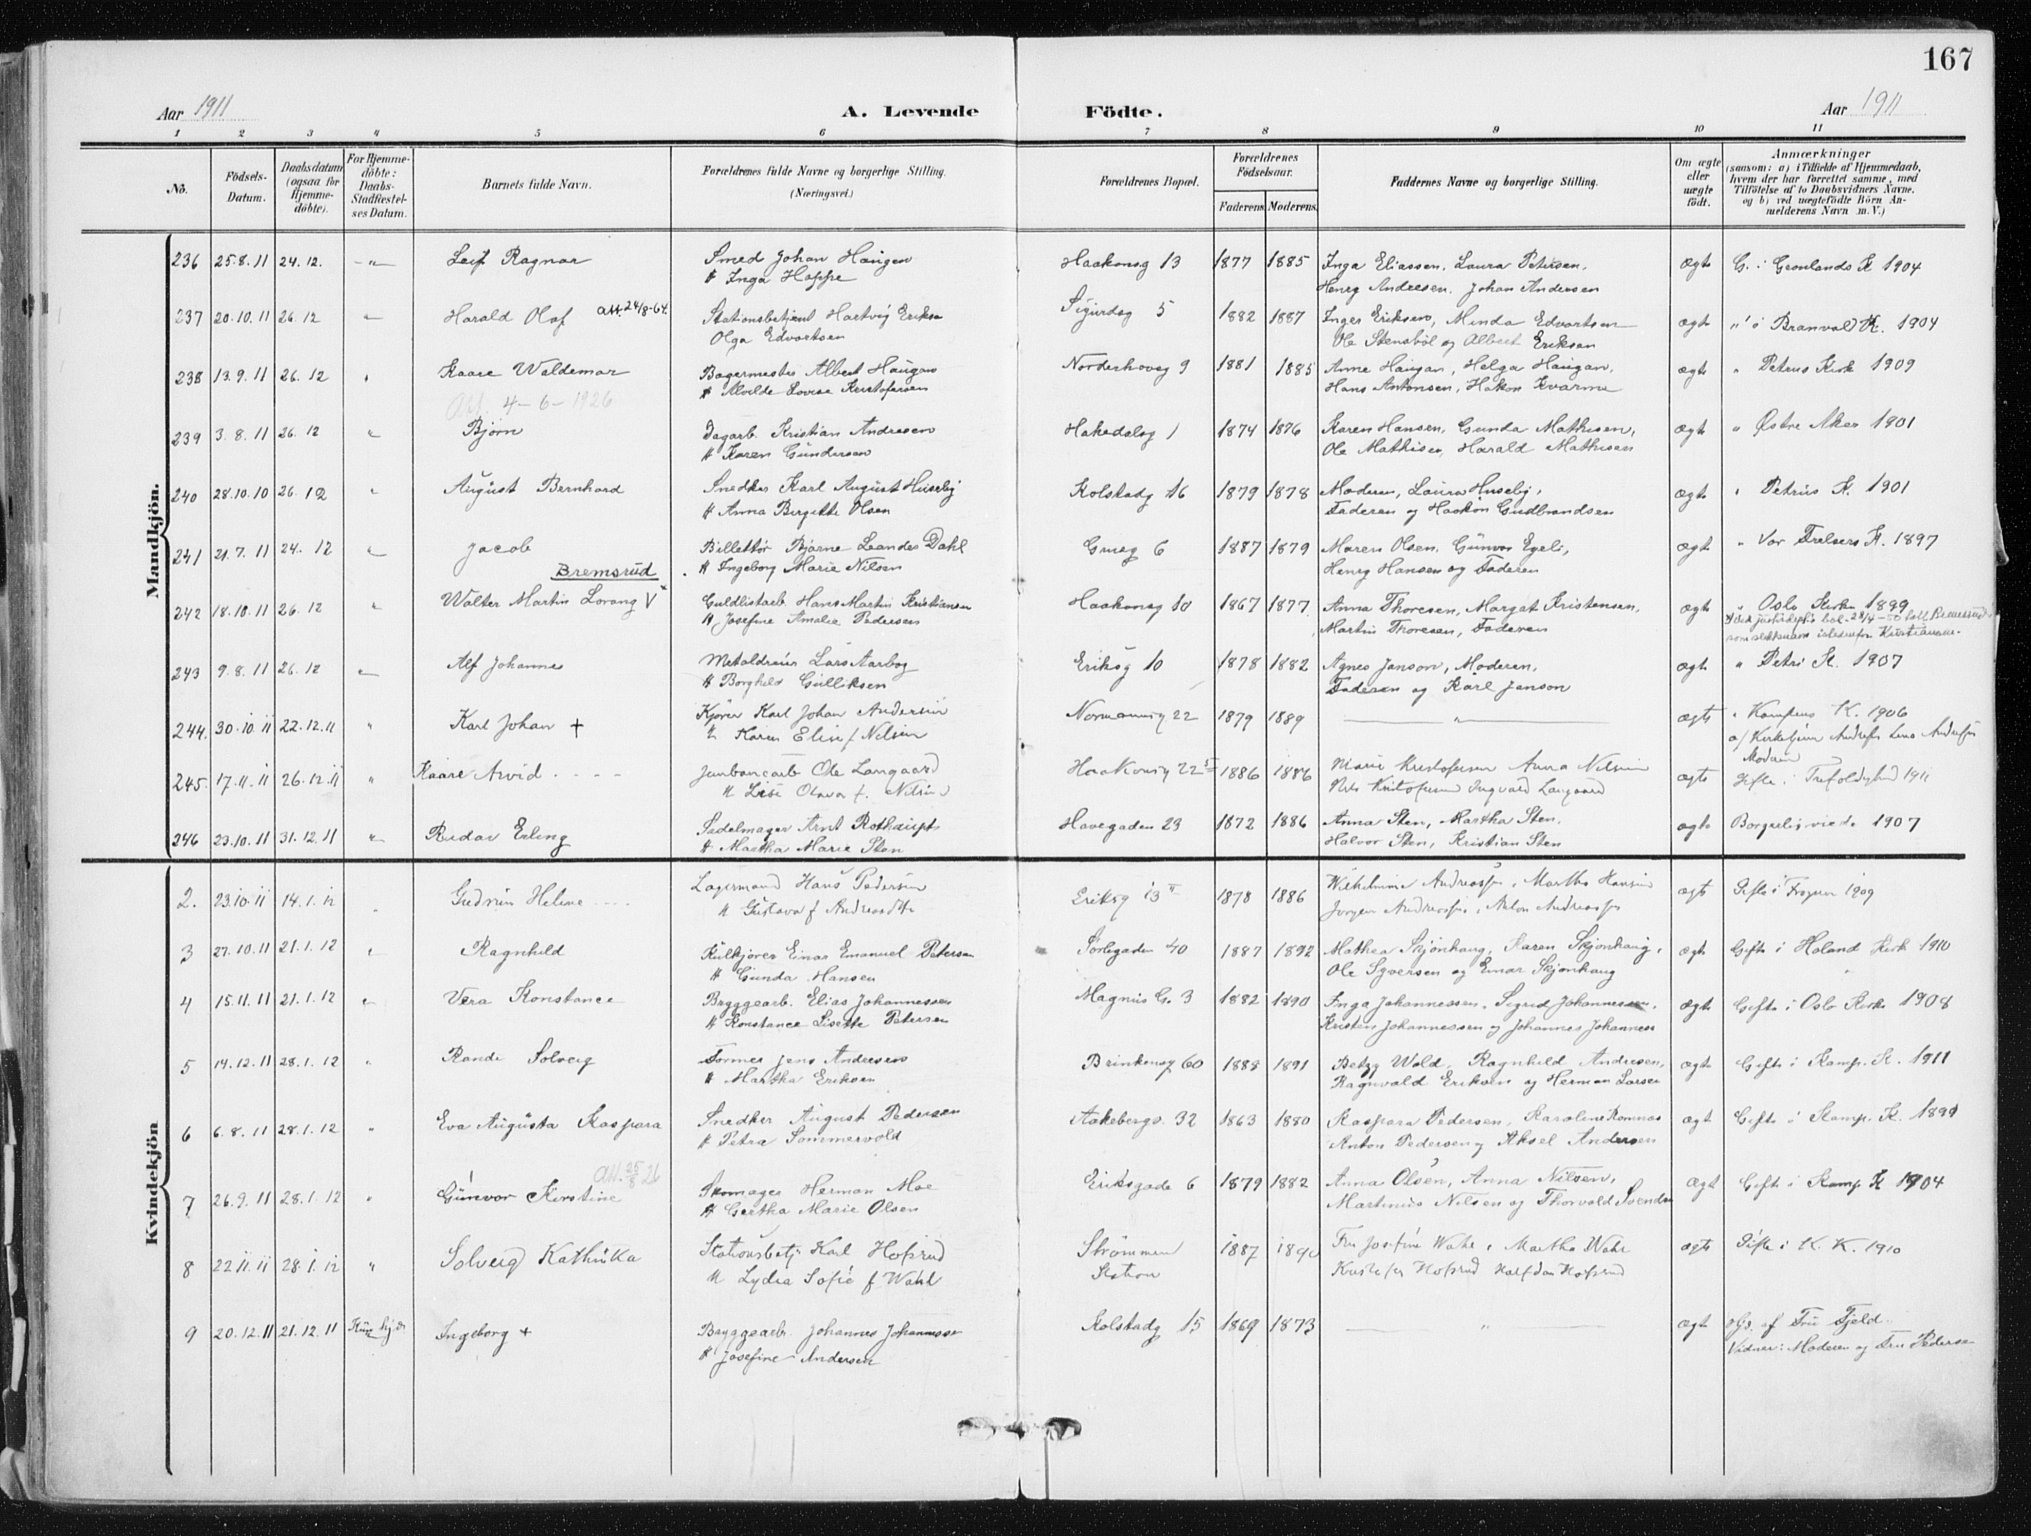 167
Aar 1911
A. Levende Födte.
Aar 1911
1 2 3 4 5 6 7 8 9 10 11
No.
Födsels-Datum.
Daabsdatum (ogsaa for Hjemme-döbte).
For Hjemme-döbte: Daabs-Stadfestel-ses Datum.
Barnets fulde Navn.
Forældrenes fulde Navne og borgerlige Stilling. (Næringsvei.)
Forældrenes Bopæl.
Forældrenes Födselsaar.
Faderens. Moderens.
Faddernes Navne og borgerlige Stilling.
Om ægte eller uægte födt.
Anmærkninger
(saasom: a) i Tilfælde af Hjemmedaab, hvem der har forrettet samme, med Tilföielse af to Daabsvidners Navne, og b) ved uægtefödte Börn An-melderens Navn m. V.)
Mandkjön.
236 25.8.11 24.12. -"- Leif Ragnar Smed Johan Haugen Haakonsg 13 1877 1885 Inga Eliassen, Laura Petersen, ægte G. i Grønlands K 1904
H Inga Hoppe Henry Andresen, Johan Andersen
237 20.10.11 26.12 " Harald Olof att. 24/8-64 Stationsbetjent Hartvig Erikse Sigurdsg 5 1882 1887 Inger Eriksen, Minda Edvartsen ægte " i Branvold K. 1904
Olga Edvartsen Ole Stensböl og Albert Eriksen
238 13.9.11 26.12 " Kaare Waldemar Bagermester Albert Haugan Norderhovsg 9 1881 1885 Anne Haugan, Helga Haugan, ægte " Petrus Kirk 1909
Att. 4-6-1926 H Alvilde Lovise Kristofersen Hans Antonsen, Hakon Kvarme
239 3.8.11 26.12 " Bjørn Dagarb. Kristian Andresen Hakedalsg 1 1874 1876 Karen Hansen, Gunda Mathisen, ægte " Østre Aker 1901
H Karen Gundersen Ole Mathisen, Harald Mathisen
240 28.10.10 26.12 " August Bernhard Snedker Karl August Huseby Kolstadg 16 1879 1878 Moderen, Laura Huseby, ægte " Petrus K. 1901
H Anna Birgitte Olsen Faderen og Haakon Gudbrandsen
241 21.7.11 24.12 " Jacob Billettør Bjarne Leander Dahl Grueg 6 1887 1879 Maren Olsen, Gunvor Egeli, ægte " Vor Frelsers K. 1897
Bremsrud H Ingeborg Marie Nilsen Henry Hansen og Faderen
242 18.10.11 26.12 " Walter Martin Lorang V Guldlistarb Hans Martin Kristiansen Haakonsg 10 1867 1877 Anna Thoresen, Margit Kristensen, ægte " Oslo Kirke 1899
H Josefine Amalie Pedersen Martin Thoresen, Faderen
243 9.8.11 26.12 " Alf Johannes Metaldreier Lars Aarbog Eriksg 10 1878 1882 Agnes Janson, Moderen, ægte " Petri K. 1907
H Borghild Gulliksen Faderen og Karl Janson
244. 30.10.11 22.12.11 " Karl Johan + Kjører Karl Johan Andersen Normannsg 22 1879 1889 " ægte " Kampens K. 1906
H Karen Elise f Nilsen a/ Kirketjener
Moderen
245. 17.11.11 26.12.11 " Kaare Arvid Jernbanearb Ole Langaard Haakonsg 22 1886 1886 Marie Kristofersen Anna Nilsen ægte Gifte i Trefoldighed 1911
H Lise Olava f. Nilsen Nils Kristofersen Ingvald Langaard
246 23.10.11 31.12.11 " Reidar Erling Sadelmager Arnt Rothaupt Havegaden 23 1872 1886 Anna Sten, Martha Sten, ægte Borgerlig viede 1907
H Martha Marie Sten Halvor Sten, Kristian Sten
Kvindekjön
2. 23.10.11 14.1.12 Gudrun Helene Lagermand Hans Pedersen Eriksg 13 II 1878 1886 Wilhelmine Andreass, Martha Hansen ægte Gifte i Frogner 1909
H Gustava f Andreasdtr Jørgen Andreass, Anton Andreass
3 27.10.11 21.1.12 " Ragnhild Kulkjører Einar Emanuel Petersen Sørligaden 40 1887 1892 Mathea Skjønhaug, Karen Skjønhaug, ægte Gifte i Holand Kirk 1910
H Gunda Hansen Ole Syversen og Einar Skjønhaug
4 15.11.11 21.1.12 " Vera Konstance Bryggearb. Elias Johannessen Magnus G. 3 1882 1890 Inga Johannessen, Sigrid Johannessen, ægte Gifte i Oslo Kirke 1908
H Konstance Lisette Petersen Kristen Johannessen og Johannes Johanness
5 14.12.11 28.1.12 " Randi Solveig Former Jens Andresen Brinkensg 60 1888 1891 Betzy Wold, Ragnhild Andresen, ægte Gifte i Kamp. K. 1911
H Martha Eriksen Ragnvald Eriksen og Herman Larsen
6 6.8.11 28.1.12 " Eva Augusta Kaspara Snedker August Pedersen Aakebergv. 32 1863 1880 Kaspara Pedersen, Karoline Komnæs ægt Gifte i Kamp. K. 1899
H Petra Sommervold Anton Pedersen og Aksel Andersen
7 26.9.11 28.1.12 " Gunvor Kirstine Att. 25/8 26 Skomager Herman Moe Eriksgade 6 1879 1882 Anna Olsen, Anna Nilsen, ægt Gifte i Kamp K 1904
H Gertha Marie Olsen Martinus Nilsen og Thorvald Svendsen
8 22.11.11 28.1.12 " Solveig Kathinka Stationsbetj Karl Hofsrud Strømmen 1887 1890 Fru Josefine Wahl, Martha Wahl ægte Gifte i K. K. 1910
H Lydia Sofie f Wahl Station Kristofer Hofsrud Halfdan Hofsrud
9 20.12.11 21.12.11 Kun hj.d. Ingeborg + Bryggearb Johannes Johannessen Kolstadg 15 1869 1873 " ægt Hjd. af Fru Fjeld.
H Josefine Andersen Vidner: Moderen og Fru Pedersen